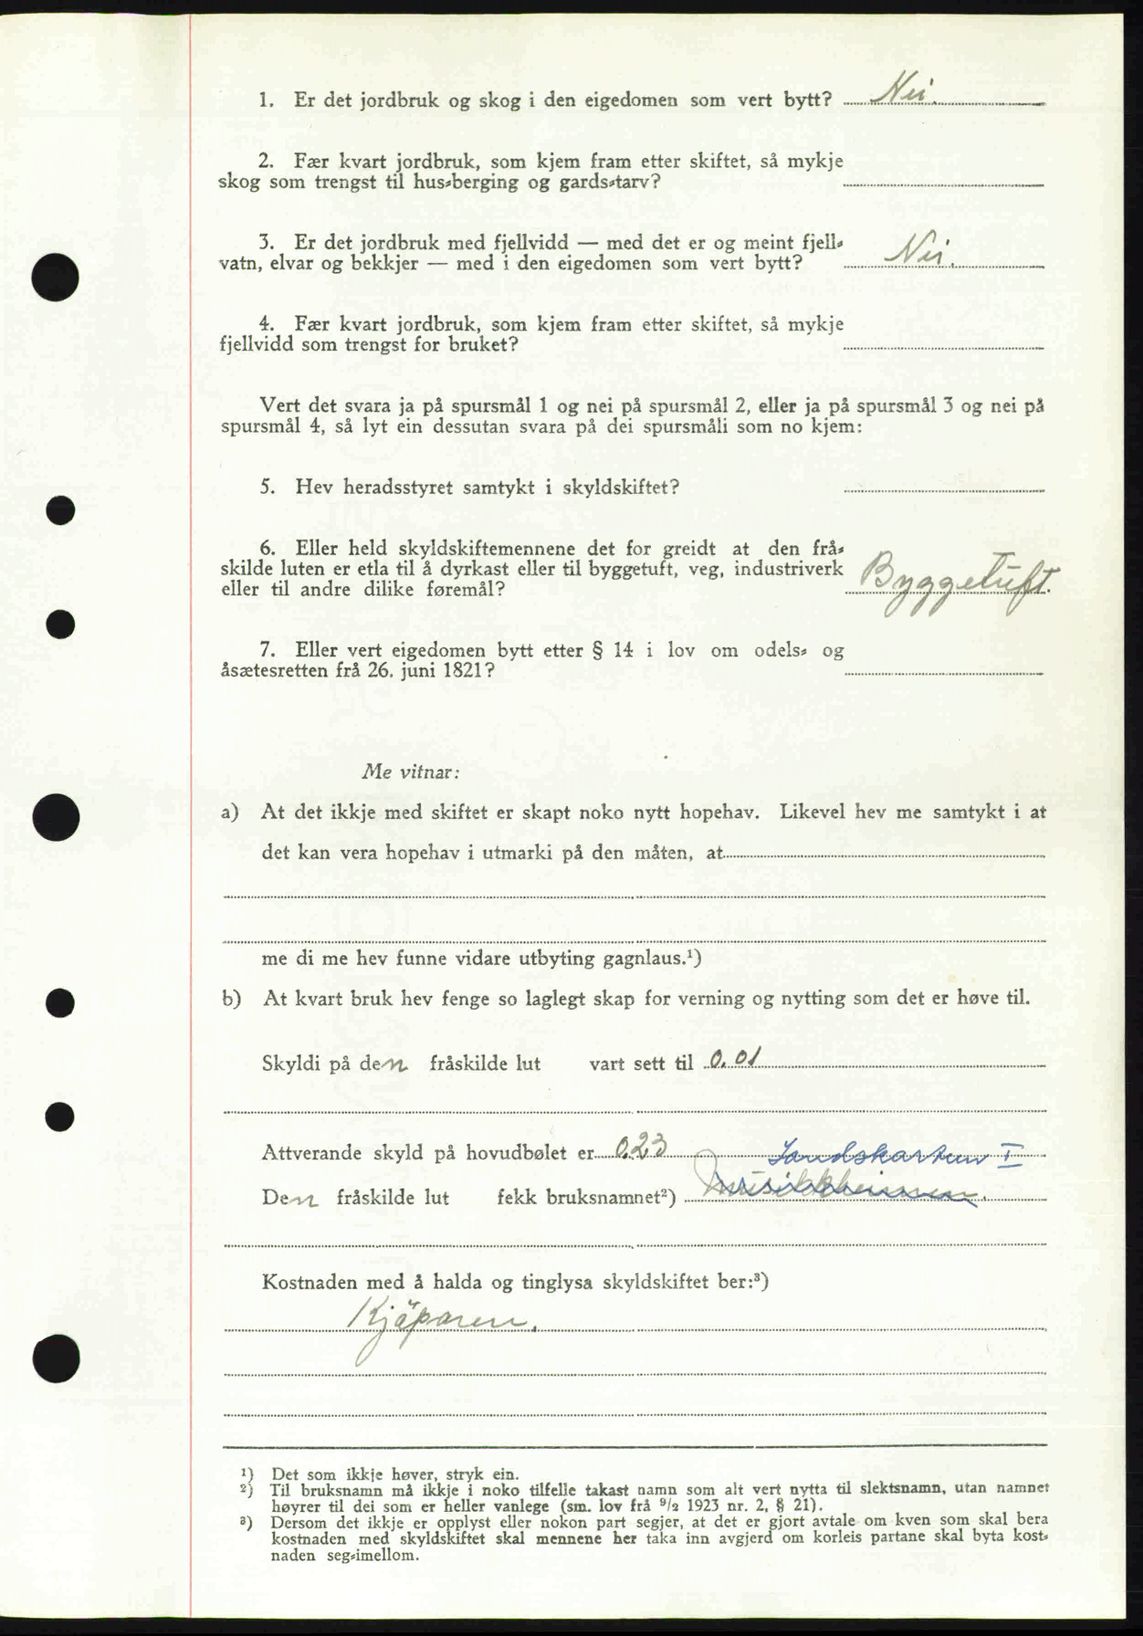 1. Er det jordbruk og skog i den eigedomen som vert bytt? Nei.
2. Fær kvart jordbruk, som kjem fram etter skiftet, så mykje
skog som trengst til hus-berging og gards-tarv?
3. Er det jordbruk med fjellvidd — med det er og meint fjell-
vatn, elvar og bekkjer — med i den eigedomen som vert bytt? Nei.
4. Fær kvart jordbruk, som kjem fram etter skiftet, så mykje
fjellvidd som trengst for bruket?
Vert det svara ja på spursmål 1 og nei på spursmål 2, eller ja på spursmål 3 og nei på
spursmål 4, så lyt ein dessutan svara på dei spursmåli som no kjem:
5. Hev heradsstyret samtykt i skyldskiftet?
6. Eller held skyldskiftemennene det for greidt at den frå-
skilde luten er etla til å dyrkast eller til byggetuft, veg, industriverk
eller til andre dilike føremål? Byggetuft.
7. Eller vert eigedomen bytt etter § 14 i lov om odels- og
åsætesretten frå 26. juni 1821?
Me vitnar:
a) At det ikkje med skiftet er skapt noko nytt hopehav. Likevel hev me samtykt i at
det kan vera hopehav i utmarki på den måten, at
me di me hev funne vidare utbyting gagnlaus.¹)
b) At kvart bruk hev fenge so laglegt skap for verning og nytting som det er høve til.
Skyldi på den fråskilde lut vart sett til 0.01
Attverande skyld på hovudbølet er 0.23
I
Den fråskilde lut fekk bruksnamnet²)
Kostnaden med å halda og tinglysa skyldskiftet ber:³)
Kjöparen.
¹) Det som ikkje høver, stryk ein.
²) Til bruksnamn må ikkje i noko tilfelle takast namn som alt vert nytta til slektsnamn, utan namnet
høyrer til dei som er heller vanlege (sm. lov frå ⁹/₂ 1923 nr. 2, § 21).
³) Dersom det ikkje er opplyst eller nokon part segjer, at det er gjort avtale om kven som skal bera
kostnaden med skyldskiftet skal mennene her taka inn avgjerd om korleis partane skal byta kost-
naden seg-imellom.